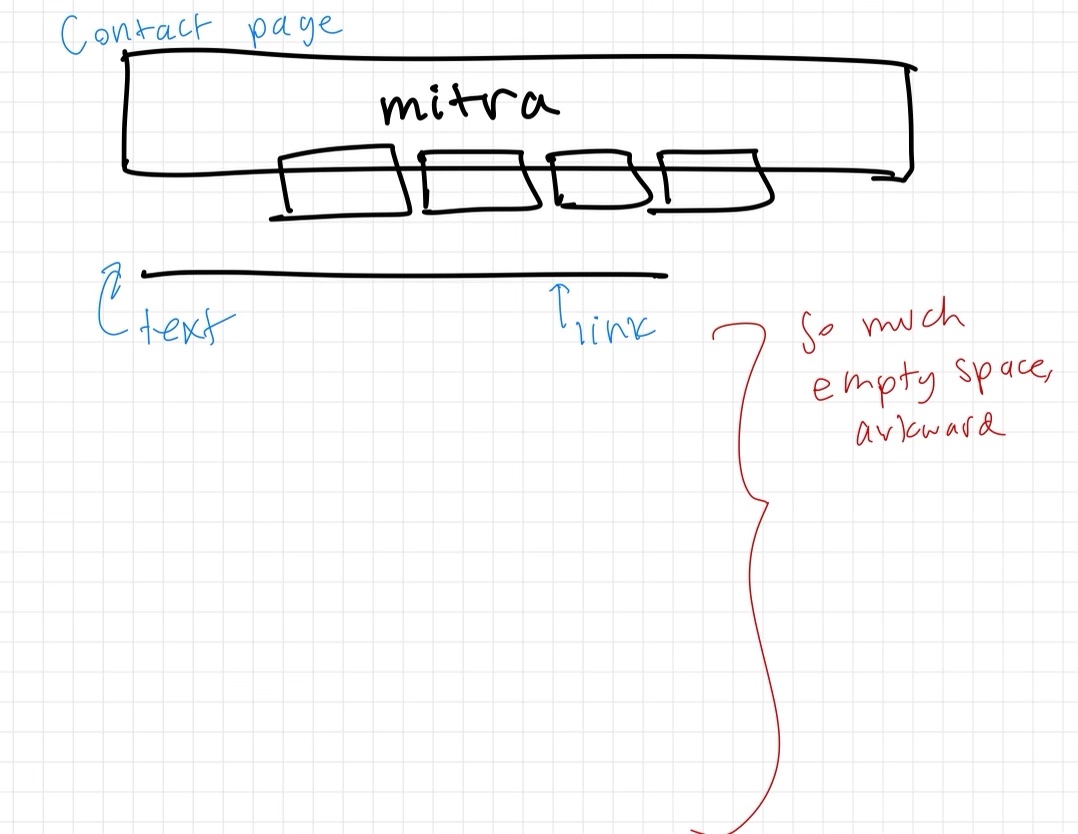 Contact page
mitra
text
link
So much
empty space,
awkward